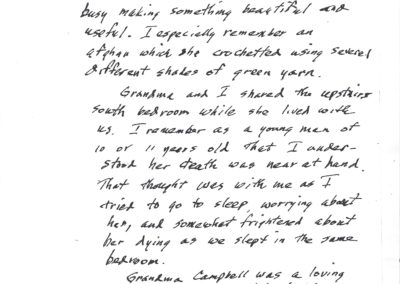 busy making something beautiful and
useful. I especially remember an
afghan which she crochetted using several
different shades of green yarn.
Grandma and I shared the upstairs
south bedroom while she lived with
us. I remember as a young man of
10 or 11 years old that I under-
stood her death was near at hand.
That thought was with me as I
tried to go to sleep, worrying about
her, and somewhat frightened about
her dying as we slept in the same
bedroom.
Grandma Campbell was a loving